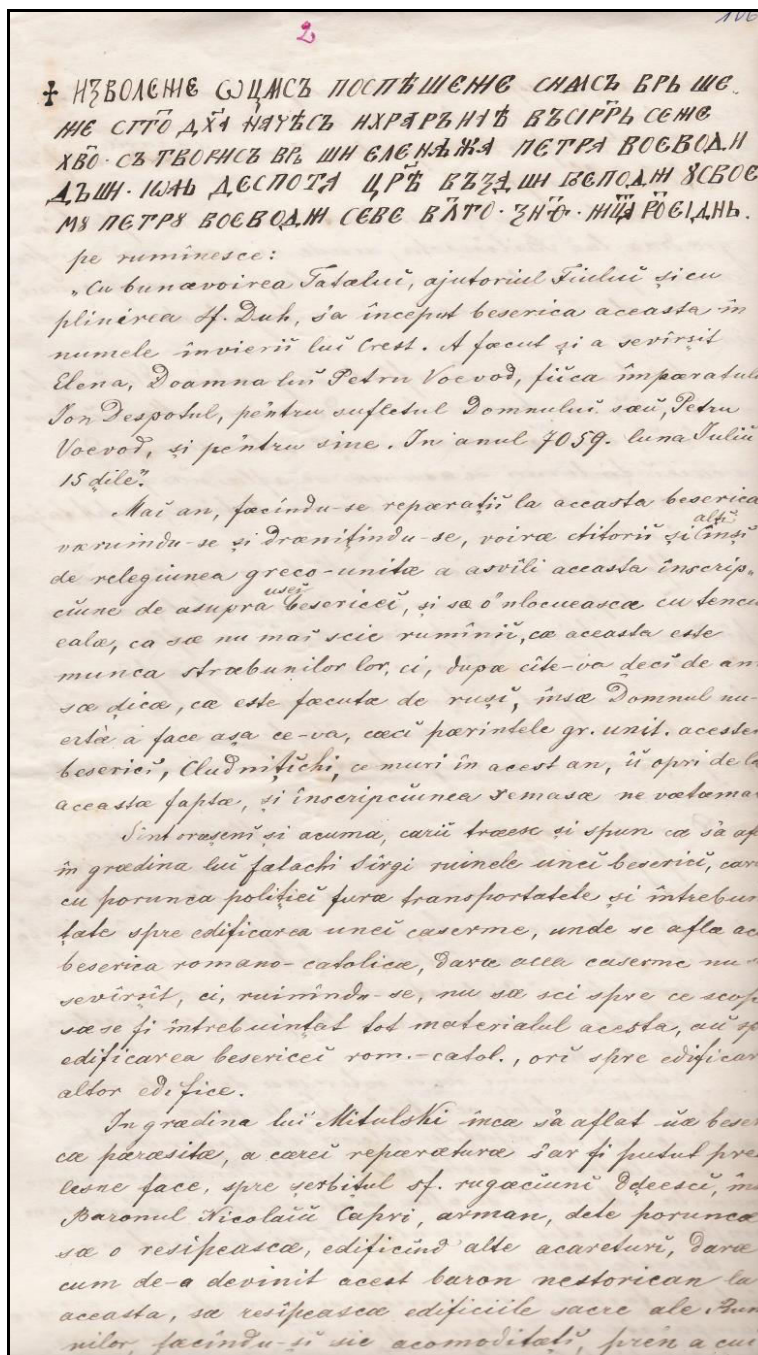 2
106
✝ НꙀВОЛЄНЇЄ ѠЦМСЪ ПОСПѢШЄНЇЄ СНМСЪ ВРЬ ШЄ
НЇЄ СГТО ДХ҃А НАЧѢСЪ НХРАРЪНАѢ ВЪСІРРЬ СЄЖЄ
ХВ҃О · СЪТВОРИСЪ ВРЬ ШИ ЄЛЄНѢЖА ПЄТРА ВОЄВОДИ
ДЪШИ · ІѠНЬ ДЄСПОТА ЦРѢ ВЪꙀД ШИ ГОСПОДЖИ ꙊСВОЄ
МꙊ ПЄТРꙊ ВОЄВОДЖИ СЄВЄ ВЛТО · ꙀНѲ · МЦА РОЄІДНЬ.
pe rumînesce:
„Cu bunævoirea Tatælui̇̆, ajutoriul Fiului̇̆ și cu
plinirea sf. Duh, s'a început beserica aceasta în
numele învierii̇̆ lui̇̆ Crest. A fæcut și a sevîrșit
Elena, Doamna lui̇̆ Petru Voevod, fiica împæratul
Jon Despotul, pentru sufletul Domnului̇̆ sæu̇̆, Petru
Voevod, și pentru sine. In anul 7059. luna Iuliu
15 dile".
Mai̇̆ an, fæcîndu-se repæratii̇̆ la aceasta beserica
væruindu-se și drænițindu-se, voiræ ctitorii̇̆ și alți̇̆ înși̇̆
de relegiunea greco-unitæ a asvîli aceasta înscrip„
ciune de asupra ușei̇̆ besericei̇̆, și sæ o'nlocueascæ cu tencu
ealæ, ca sæ nu mai̇̆ scie rumînii̇̆, cæ aceasta este
munca stræbunilor lor, ci, dupæ cîte-va deci̇̆ de an
sæ dicæ, cæ este fæcutæ de ruși̇̆, însæ Domnul nu-
ertà a face așa ce-va, cæci̇̆ pærintele gr. unit. acestei
beserici̇̆, Cludnițichi, ce muri în acest an, îi̇̆ opri de la
aceastæ faptæ, și înscripciunea remasæ ne vætæma
Sînt orașeni̇̆ și acuma, carii̇̆ træesc și spun cæ s'a af
în grædina lui̇̆ Falachi Sîrgi ruinele unei̇̆ beserici̇̆, car
cu porunca poliției̇̆ furæ transportatele și întrebuin
țate spre edificarea unei̇̆ caserme, unde se aflæ ac
beserica romano-catolicæ, daræ acea caserme nu s
sevîrșit, ci, ruinîndu-se, nu sæ sci spre ce scop
sæ se fi întrebuințat tot materialul acesta, au̇̆ sp
edificarea besericei̇̆ rom.-catol., ori̇̆ spre edificar
altor edifice.
In grædina lui̇̆ Mitulski încæ s'a aflat uæ beser
cæ pæræsitæ, a cærei̇̆ repæraturæ s'ar fi putut pre
lesne face, spre șerbitul sf. rugæciuni̇̆ ḑeesci̇̆, în
Baronul Nicolaiŭ Capri, arman, dete poruncæ
sæ o resipeascæ, edificînd alte acareturi̇̆, daræ
cum de-a devinit acest baron nestorican la
aceasta, sæ resipeascæ edificiile sacre ale Rum
nilor, fæcîndu-și̇̆ sie acomodități̇̆, pren a cui